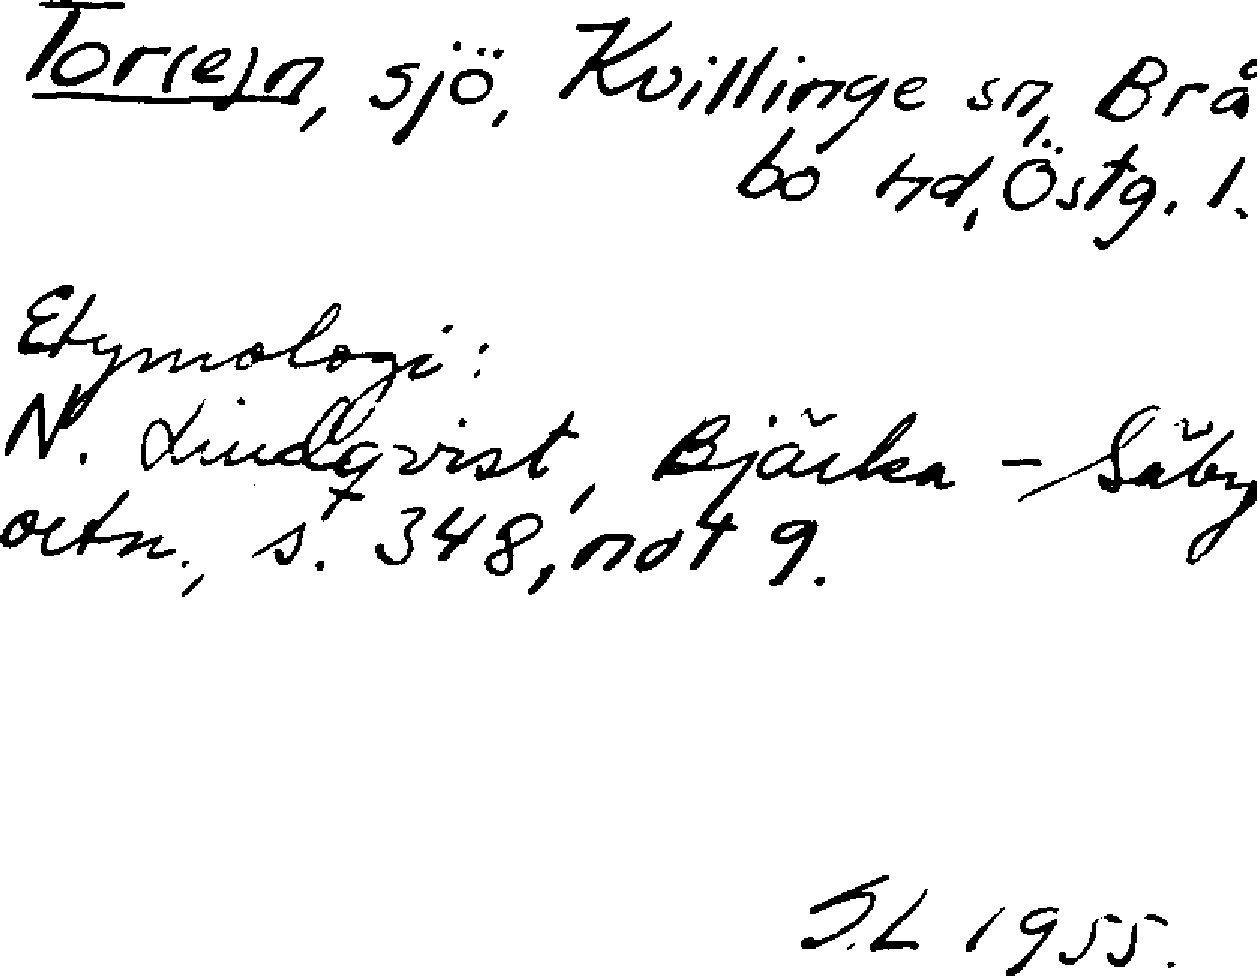 Tor(e)n, sjö, Kvillinge sn, Brå
bo hd, Östg. l.
Etymologi:
N. Lindqvist, Bjärka-Säby
ortn., s. 348, not 9.
J.L 1955.